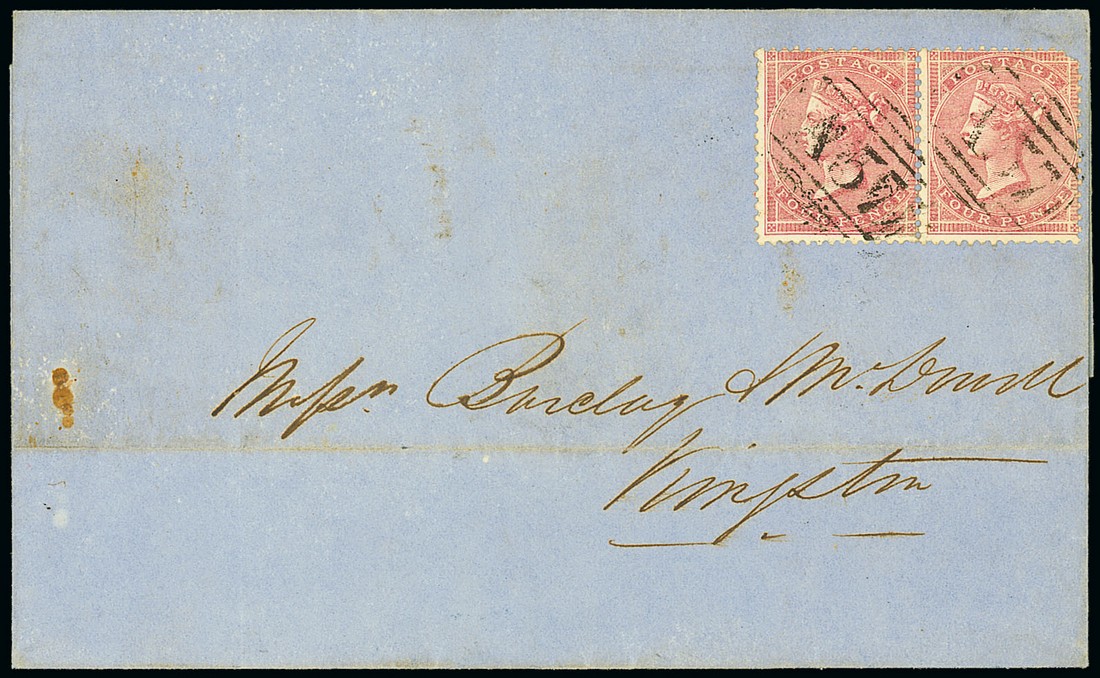 POSTAGE POSTAGE
FOUR PENCE FOUR PENCE
Messrs Barclay & McDowell
Kingston